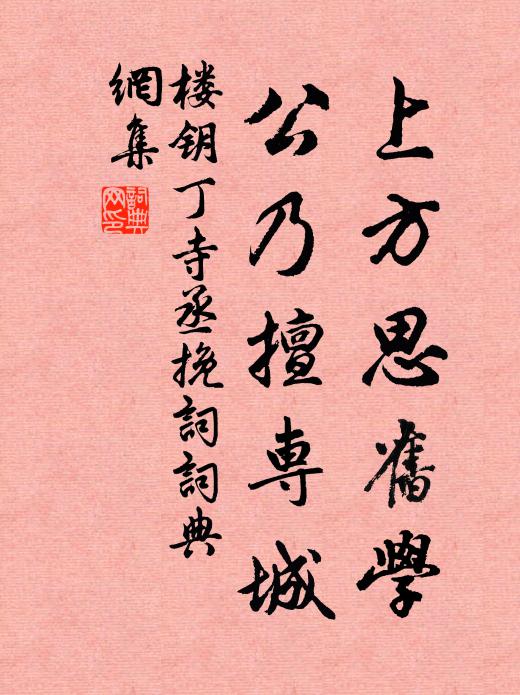 上方思舊學
公乃擅専城
楼钥丁寺丞挽詞詞典
網集
詞典
网印